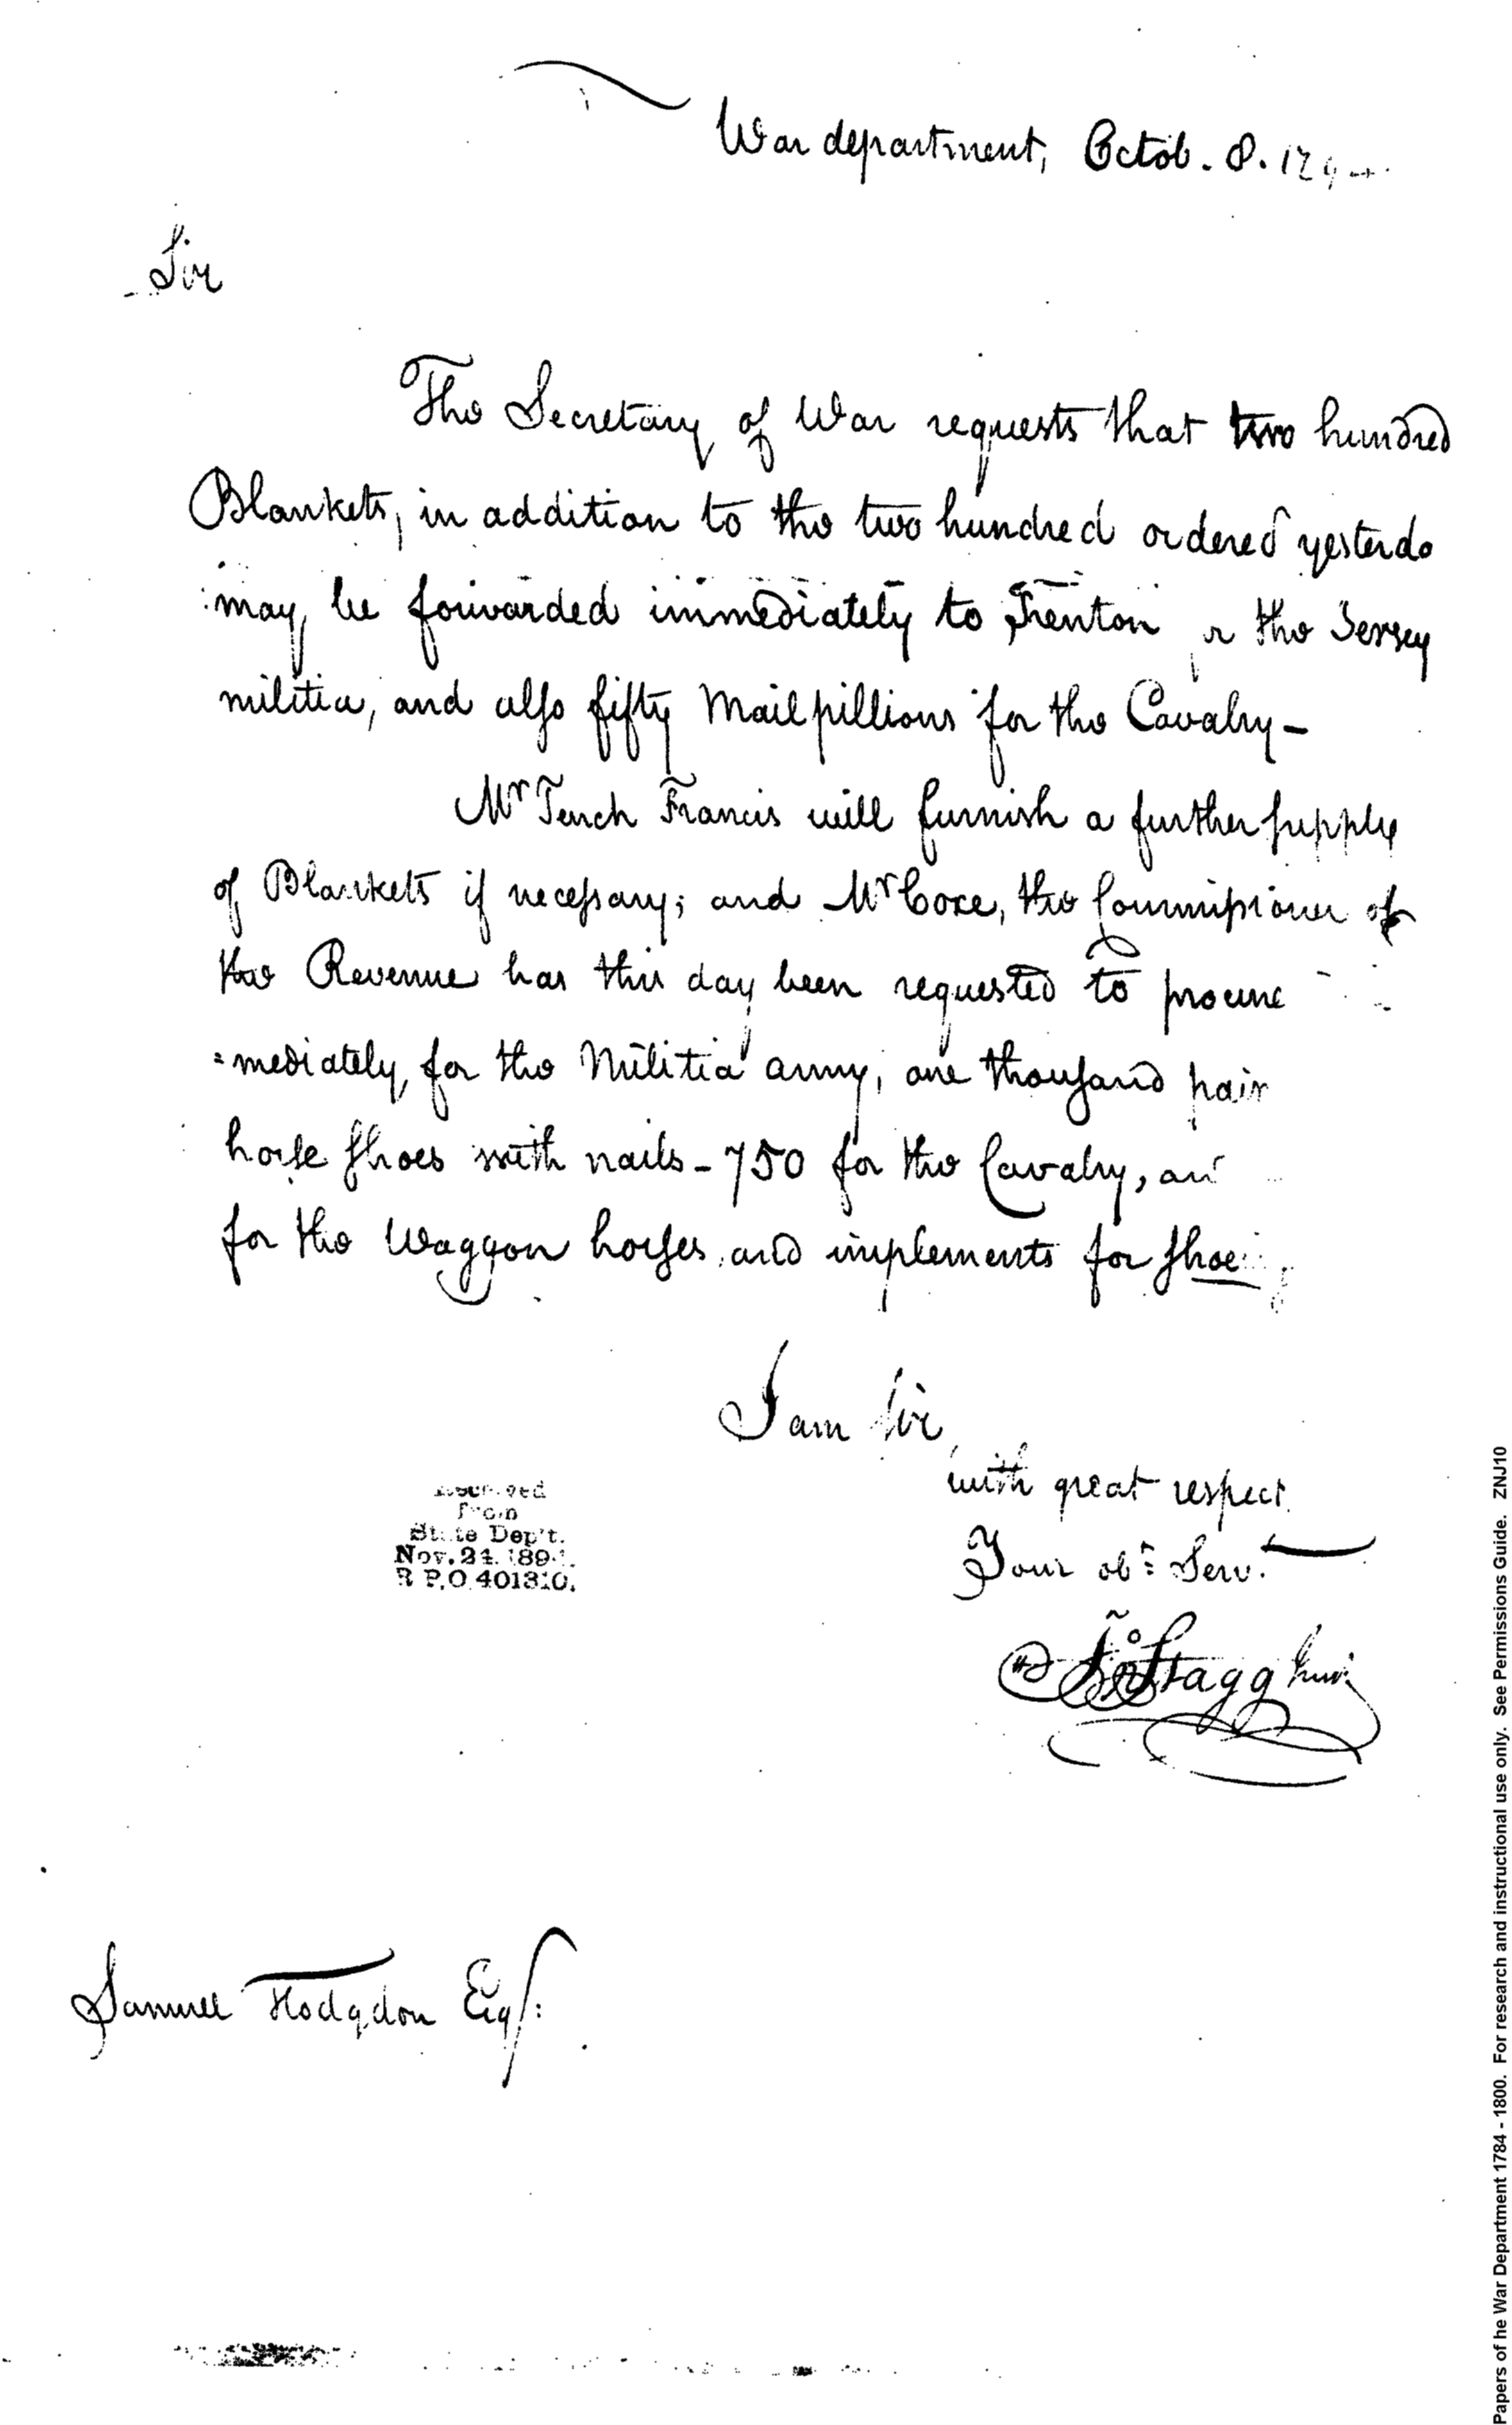 War department, Octob. 8. 179
Sir
The Secretary of War requests that two hundred
Blankets, in addition to the two hundred ordered yesterda
may be forwarded immediately to Trenton the Jersey
militia, and also fifty Mail pillions for the Cavalry –
Mr Tench Francis will furnish a further supply
of Blankets if necessary; and Mr Coxe, the Commissioner of
the Revenue has this day been requested to procure
=mediately, for the Militia army, one thousand pair
horse shoes with nails – 750 for the Cavalry, an
for the Waggon horses, and implements for shoe
I am Sir,
with great respect
Your obt: Servt
Jno Stagg Junr
Received
from
State Dep't.
Nov. 24. 189
R P.O. 401310.
Samuel Hodgdon Esqr:
Papers of he War Department 1784 - 1800. For research and instructional use only. See Permissions Guide. ZNJ10